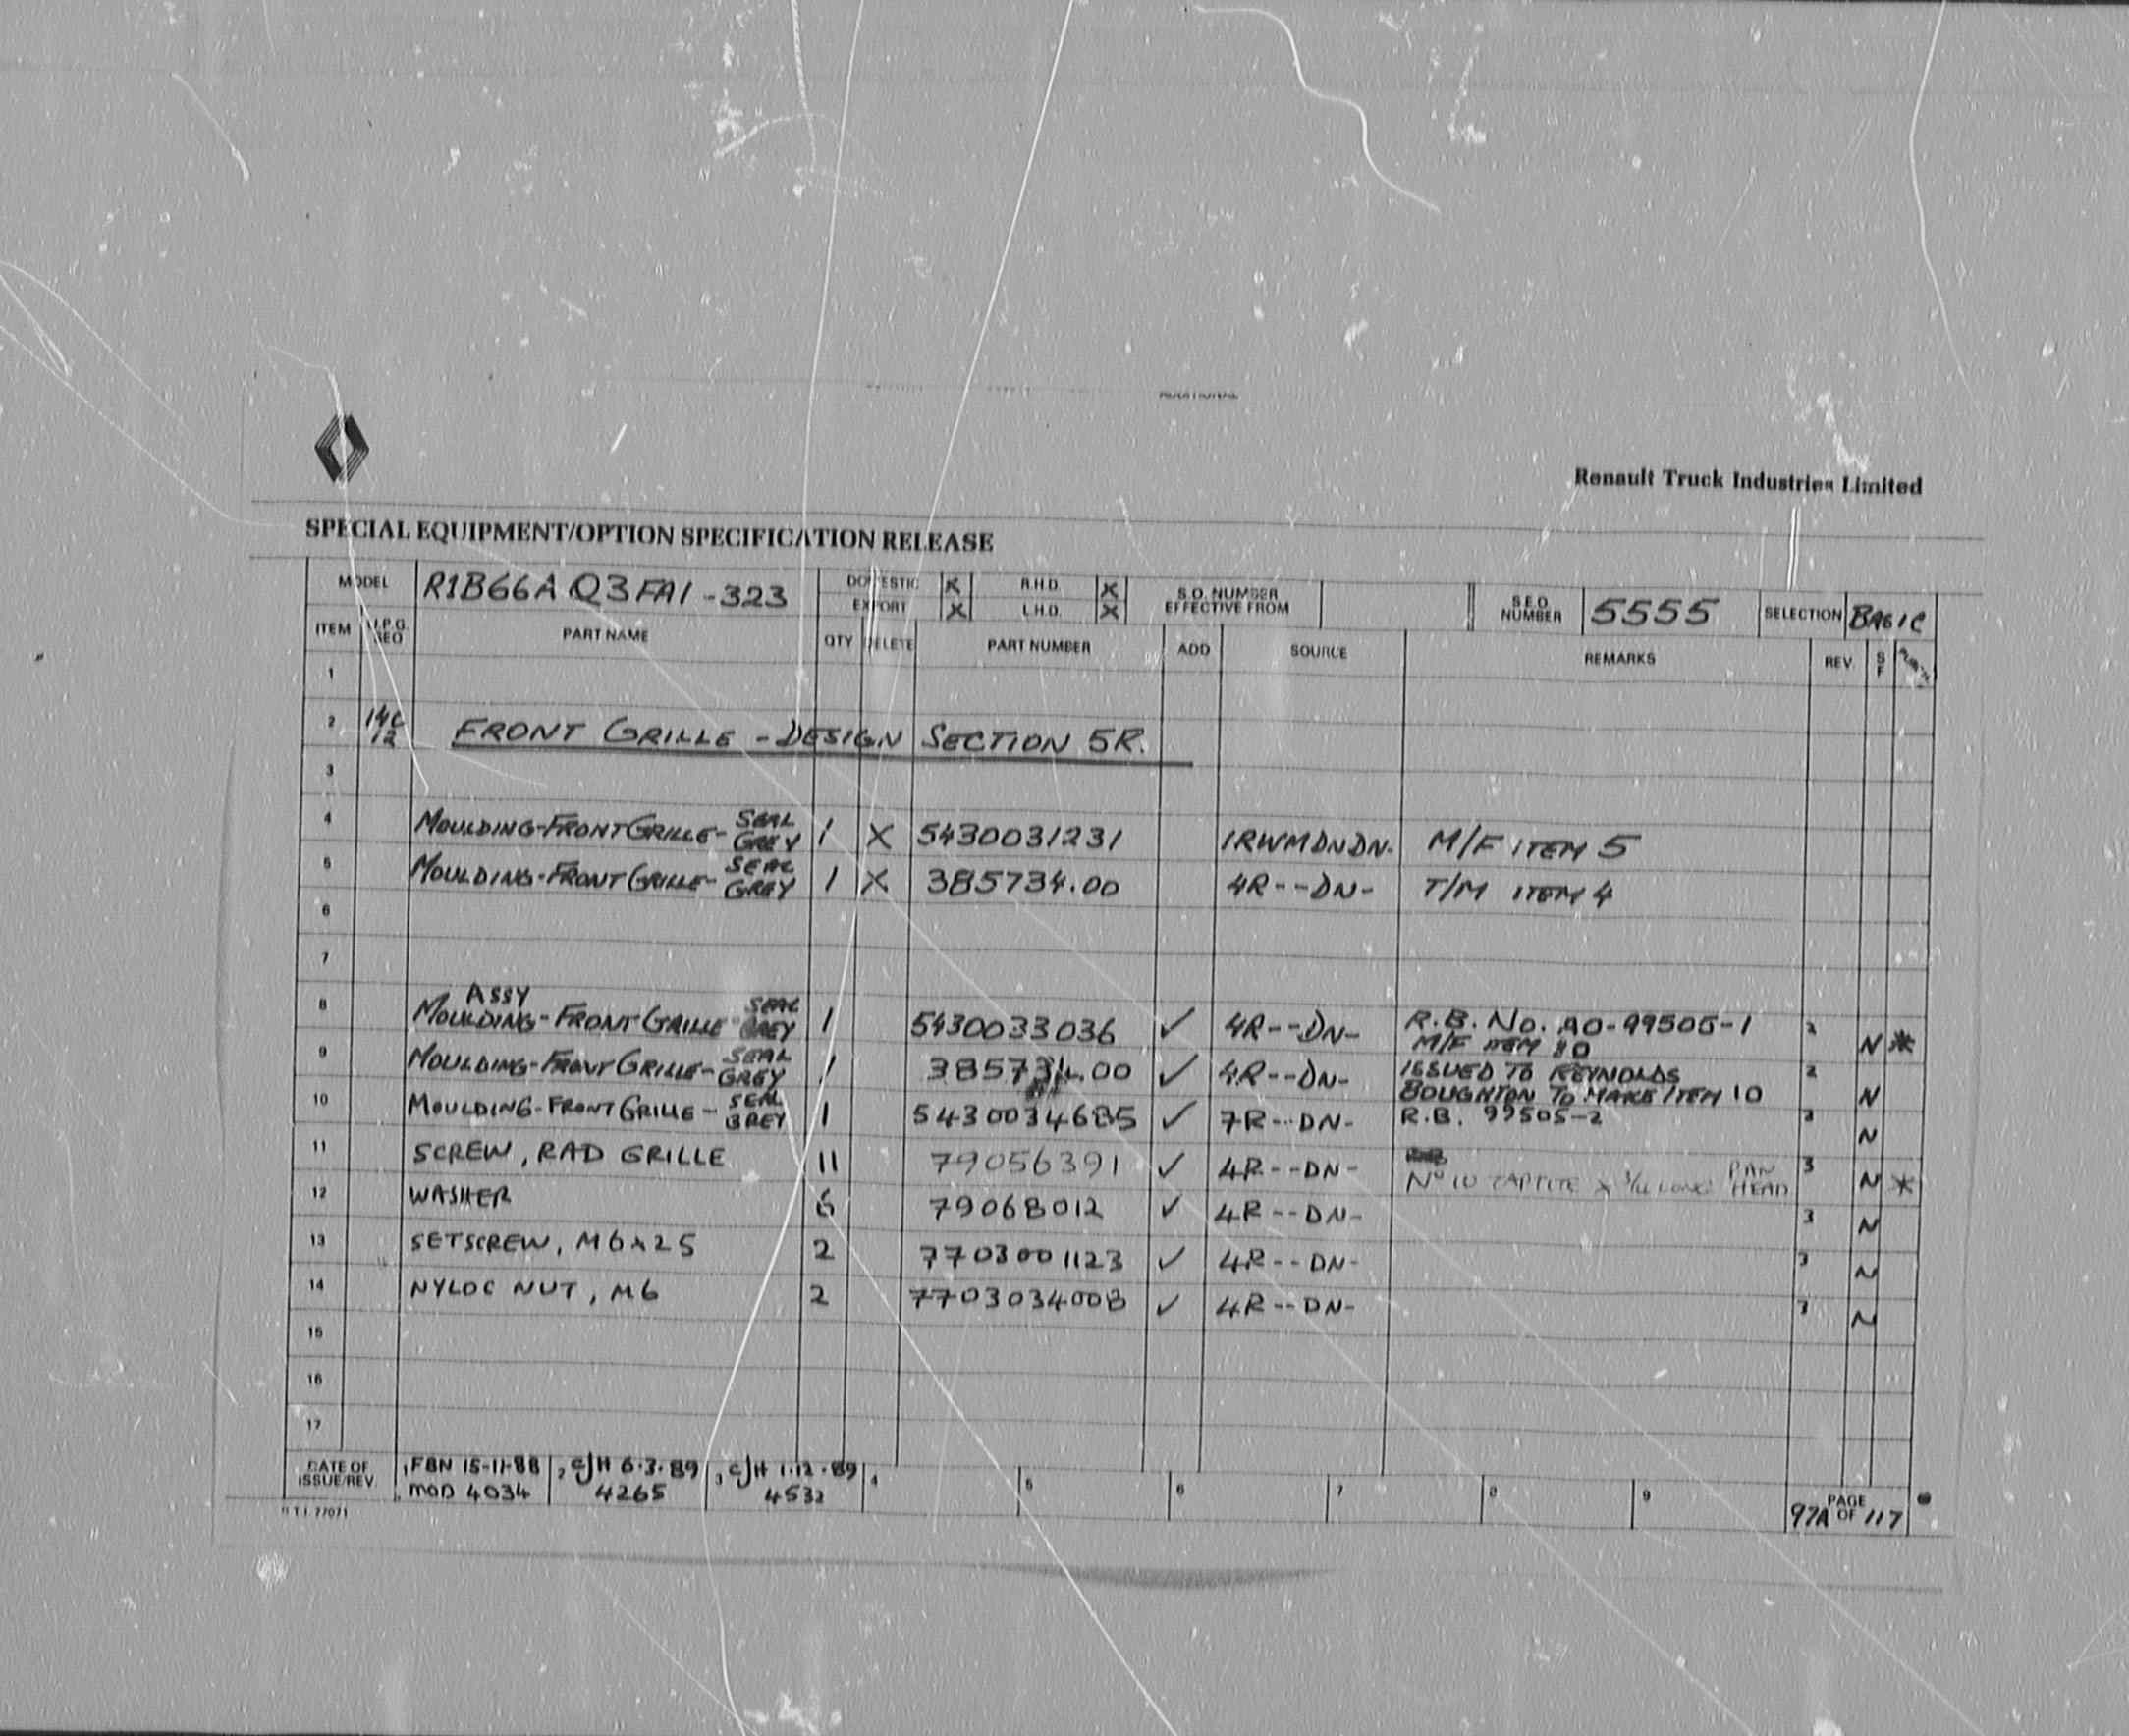 Renault Truck Industries Limited
SPECIAL EQUIPMENT/OPTION SPECIFICATION RELEASE
MODEL R1B66A Q3FA1-323 DOMESTIC X R.H.D. X S.O. NUMBER S.E.O. NUMBER 5555 SELECTION BASIC
EXPORT X L.H.D. X EFFECTIVE FROM
ITEM U.P.G. SEQ PART NAME QTY DELETE PART NUMBER ADD SOURCE REMARKS REV S F
1
2 14C 12 FRONT GRILLE - DESIGN SECTION 5R.
3
4 MOULDING-FRONT GRILLE- SEAL GREY 1 X 5430031231 1RWMDNDN- M/F ITEM 5
5 MOULDING-FRONT GRILLE- SEAL GREY 1 X 385734.00 4R--DN- T/M ITEM 4
6
7
8 ASSY MOULDING-FRONT GRILLE SEAL GREY 1 5430033036 ✓ 4R--DN- R.B. No. AO-99505-1 2 N *
M/F ITEM 10
9 MOULDING-FRONT GRILLE- SEAL GREY 1 385734.00 ✓ 4R--DN- ISSUED TO REYNOLDS 2 N
BOUGHTON TO MAKE ITEM 10
10 MOULDING-FRONT GRILLE- SEAL GREY 1 5430034685 ✓ 7R--DN- R.B. 99505-2 3 N
11 SCREW, RAD GRILLE 11 79056391 ✓ 4R--DN- No 10 TAPTITE x LONG PAN HEAD 3 N *
12 WASHER 6 79068012 ✓ 4R--DN- 3 N
13 SETSCREW, M6x25 2 7703001123 ✓ 4R--DN- 3 N
14 NYLOC NUT, M6 2 7703034008 ✓ 4R--DN- 3 N
15
16
17
DATE OF ISSUE/REV. 1 FBN 15-11-88 2 CJH 6.3.89 3 CJH 1.12.89 4 5 6 7 8 9 PAGE
MOD 4034 4265 4532 97A OF 117
R.T.I. 77071